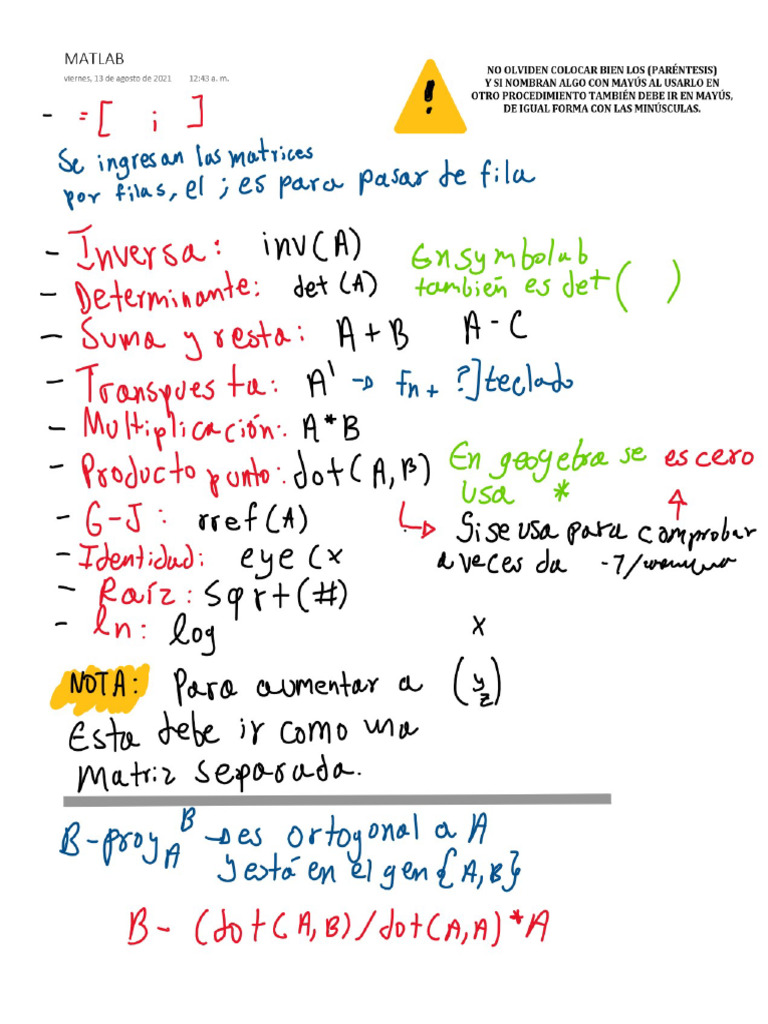 MATLAB
viernes, 13 de agosto de 2021 12:43 a. m.
NO OLVIDEN COLOCAR BIEN LOS (PARÉNTESIS)
Y SI NOMBRAN ALGO CON MAYÚS AL USARLO EN
OTRO PROCEDIMIENTO TAMBIÉN DEBE IR EN MAYÚS,
DE IGUAL FORMA CON LAS MINÚSCULAS.
- =[ ; ]
Se ingresan las matrices
por filas, el ; es para pasar de fila
- Inversa: inv(A)
En symbolab
también es det( )
- Determinante: det(A)
- Suma y resta: A+B A-C
- Transpuesta: A' → fn + ?] teclado
- Multiplicación: A*B
- Producto punto: dot(A,B)
En geogebra se
usa *
es cero
↳ Si se usa para comprobar
a veces da -7/
- G-J: rref(A)
- Identidad: eye(x
- Raíz: Sqrt(#)
- ln: log
NOTA: Para aumentar a (x y z)
Esta debe ir como una
matriz separada.
B-proy_A^B → es ortogonal a A
y está en el gen{A,B}
B-(dot(A,B)/dot(A,A)*A